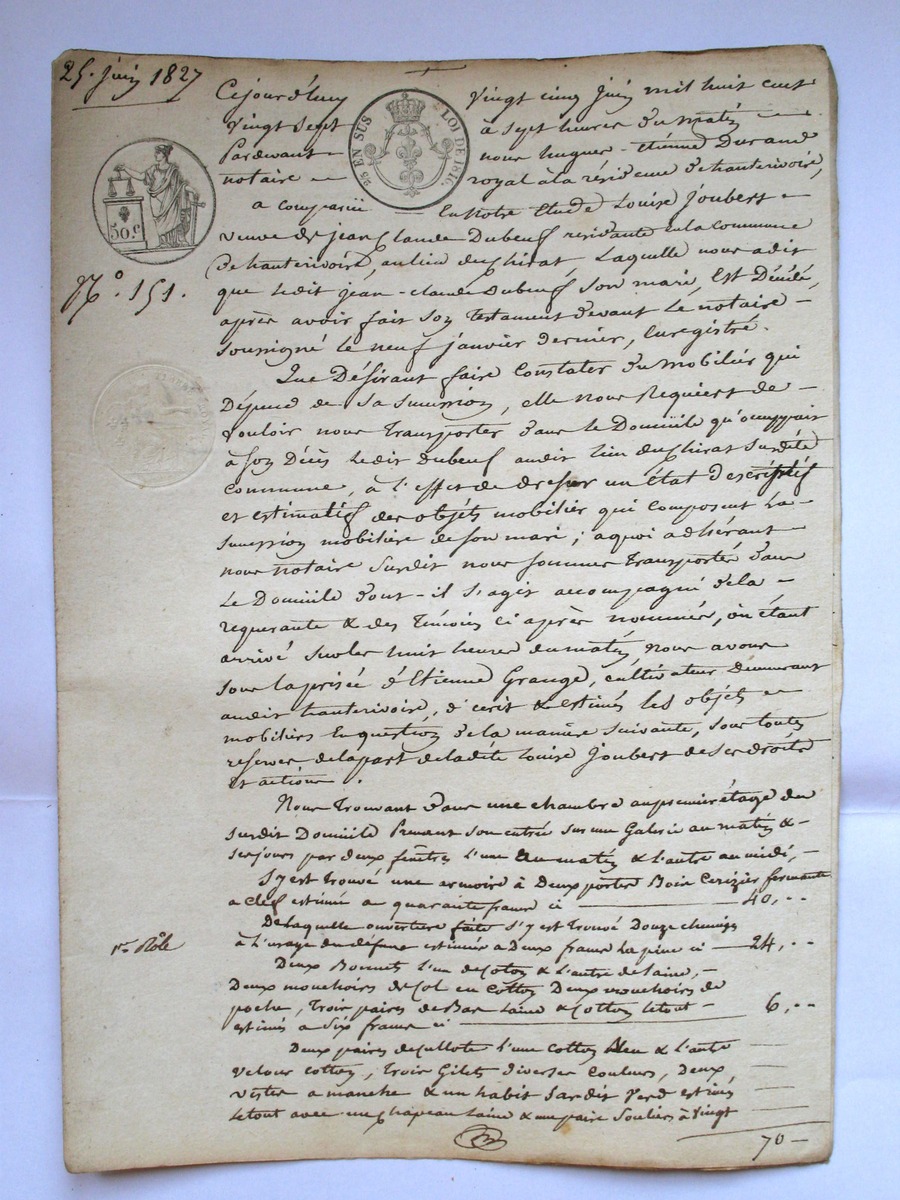 25. juin 1827
Cejourd'huy vingt cinq juin mil huit cent
vingt sept à sept heures du matin
Pardevant nous hugues-étienne Durand
notaire royal à la résidence d'hauterivoire,
25 EN SUS LOI DE 1816
50 c
N° 151.
a comparüe en notre Etude Louise Joubert
veuve de jean Claude Dubeuf residante en la commune
d'hauterivoire, au lieu du Chirat Laquelle nous a dit
que ledit jean-claude Dubeuf son mari, est Décédé,
après avoir fait son testament devant le notaire
soussigné le neuf janvier dernier, Enregistré.
Que Désirant faire Constater du mobilier qui
Dépend de sa succession, elle nous Requiert de
vouloir nous transporter dans le Domicile qu'occuppait
à son Décès ledit Dubeuf audit lieu du Chirat Susdite
commune, à l'effet de dresser un état descriptif
et estimatif des objets mobilier qui composent la
succession mobilière de son mari; a quoi adhérant
nous notaire susdit nous sommes transporté dans
le Domicile dont-il s'agit accompagné de la
requerante & des témoins ci après nommés, ou étant
arrivé sur les huit heures du matin, nous avons
sous la prisée d'Etienne Grange, cultivateur Demeurant
audit hauterivoire, décrit & estimés les objets
mobiliers en question de la manière suivante, sous toutes
reserves de la part de ladite Louise Joubert de ses droits
et actions.
Nous trouvant dans une chambre au premier étage du
susdit Domicile Prenant son entrée sur une Galerie au matin &
ses jours par deux fenêtres l'une au matin & l'autre au midi,
S'y est trouvé une armoire à Deux portes Bois Cerizier fermante
a clef estimée a quarante francs ci 40,
De laquelle ouverture faite s'y est trouvé Douze chemises
à l'usage du défunt estimées a Deux francs la piece ci 24,
1er Rôle
Deux Bonnets l'un de Coton & l'autre de laine,
Deux mouchoirs de Col en Cotton Deux mouchoirs de
poche, trois paires de Bas laine & Cotton le tout
estimés a six francs ci 6,
Deux paires de cullote l'une Cotton bleu & l'autre
velour cotton, trois Gilets diverses Couleurs, Deux
vestes a manche & un habit Sardit verd estimés
le tout avec un chapeau laine & une paire souliers à vingt
70